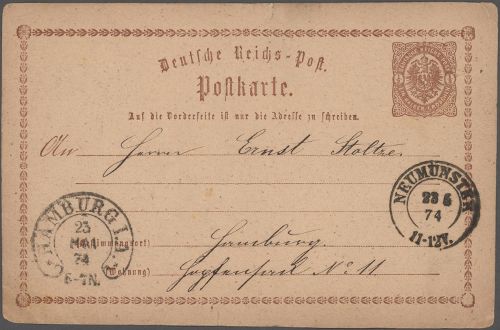 Deutsche Reichs-Post.
Postkarte.
Auf die Vorderseite ist nur die Adresse zu schreiben.
An Herrn Ernst Stoltze
NEUMÜNSTER
23 5
74
11-12V.
HAMBURG I.A.
23
MAI
74
6-7N.
(Bestimmungsort) Hamburg
(Wohnung) Hopfensack No. 11